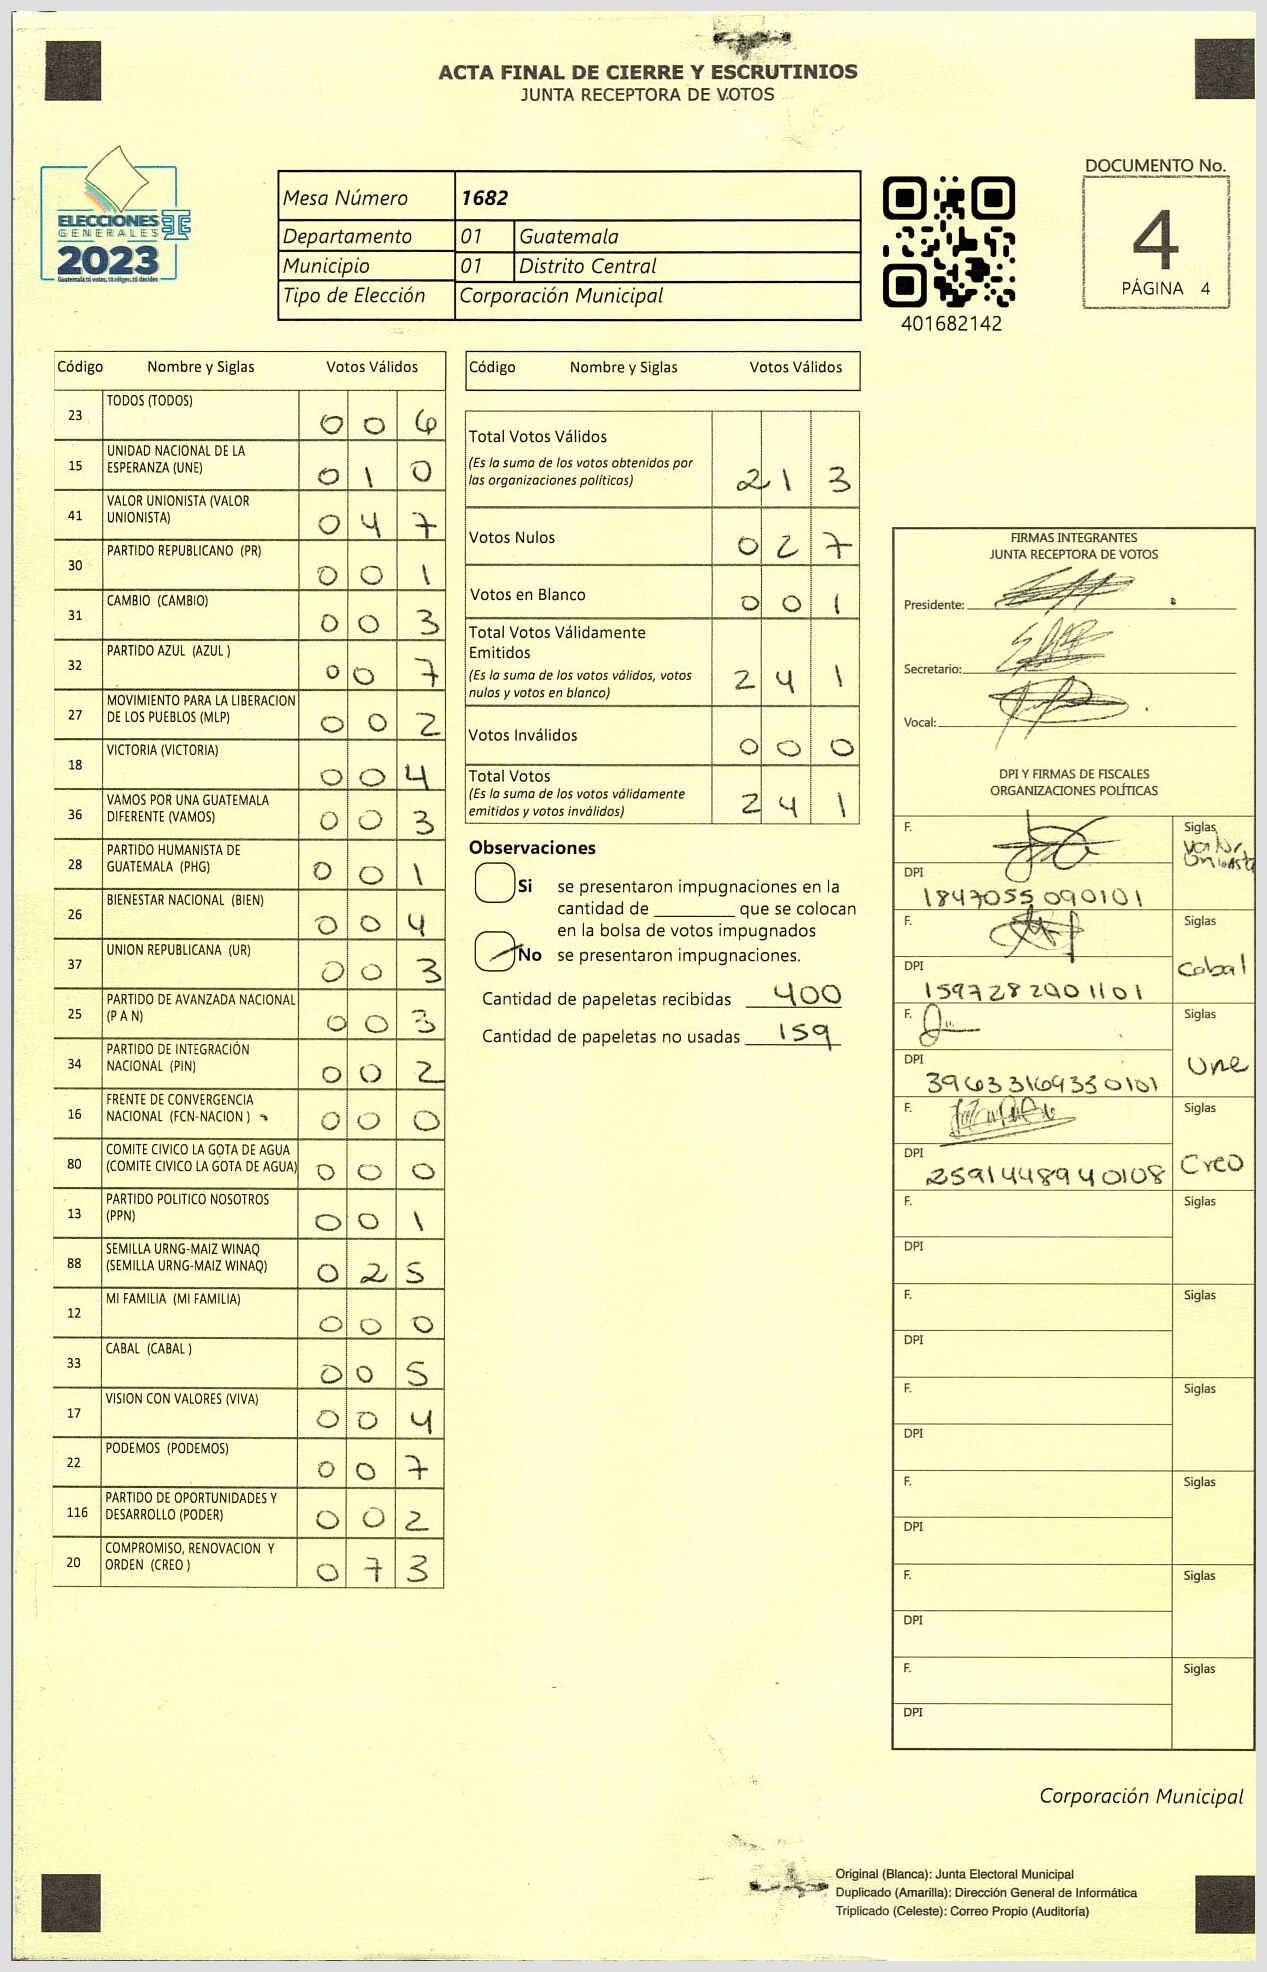 ACTA FINAL DE CIERRE Y ESCRUTINIOS
JUNTA RECEPTORA DE VOTOS
ELECCIONES
GENERALES
2023
Mesa Número 1682
Departamento 01 Guatemala
Municipio 01 Distrito Central
Tipo de Elección Corporación Municipal
401682142
DOCUMENTO No.
4
PÁGINA 4
Código Nombre y Siglas Votos Válidos
23 TODOS (TODOS) 0 0 6
15 UNIDAD NACIONAL DE LA
ESPERANZA (UNE) 0 1 0
41 VALOR UNIONISTA (VALOR
UNIONISTA) 0 4 7
30 PARTIDO REPUBLICANO (PR) 0 0 1
31 CAMBIO (CAMBIO) 0 0 3
32 PARTIDO AZUL (AZUL ) 0 0 7
27 MOVIMIENTO PARA LA LIBERACION
DE LOS PUEBLOS (MLP) 0 0 2
18 VICTORIA (VICTORIA) 0 0 4
36 VAMOS POR UNA GUATEMALA
DIFERENTE (VAMOS) 0 0 3
28 PARTIDO HUMANISTA DE
GUATEMALA (PHG) 0 0 1
26 BIENESTAR NACIONAL (BIEN) 0 0 4
37 UNION REPUBLICANA (UR) 0 0 3
25 PARTIDO DE AVANZADA NACIONAL
(P A N) 0 0 3
34 PARTIDO DE INTEGRACIÓN
NACIONAL (PIN) 0 0 2
16 FRENTE DE CONVERGENCIA
NACIONAL (FCN-NACION ) 0 0 0
80 COMITE CIVICO LA GOTA DE AGUA
(COMITE CIVICO LA GOTA DE AGUA) 0 0 0
13 PARTIDO POLITICO NOSOTROS
(PPN) 0 0 1
88 SEMILLA URNG-MAIZ WINAQ
(SEMILLA URNG-MAIZ WINAQ) 0 2 5
12 MI FAMILIA (MI FAMILIA) 0 0 0
33 CABAL (CABAL ) 0 0 5
17 VISION CON VALORES (VIVA) 0 0 4
22 PODEMOS (PODEMOS) 0 0 7
116 PARTIDO DE OPORTUNIDADES Y
DESARROLLO (PODER) 0 0 2
20 COMPROMISO, RENOVACION Y
ORDEN (CREO ) 0 7 3
Código Nombre y Siglas Votos Válidos
Total Votos Válidos
(Es la suma de los votos obtenidos por
las organizaciones políticas) 2 1 3
Votos Nulos 0 2 7
Votos en Blanco 0 0 1
Total Votos Válidamente
Emitidos
(Es la suma de los votos válidos, votos
nulos y votos en blanco) 2 4 1
Votos Inválidos 0 0 0
Total Votos
(Es la suma de los votos válidamente
emitidos y votos inválidos) 2 4 1
Observaciones
Si se presentaron impugnaciones en la
cantidad de ________ que se colocan
en la bolsa de votos impugnados
No se presentaron impugnaciones.
Cantidad de papeletas recibidas 400
Cantidad de papeletas no usadas 159
FIRMAS INTEGRANTES
JUNTA RECEPTORA DE VOTOS
Presidente:
Secretario:
Vocal:
DPI Y FIRMAS DE FISCALES
ORGANIZACIONES POLÍTICAS
F. Siglas
Valor
Unionista
DPI
1847055 090101
F. Siglas
Cabal
DPI
F. Siglas
Une
DPI
F. Siglas
Creo
DPI
2591448940108
F. Siglas
DPI
F. Siglas
DPI
F. Siglas
DPI
F. Siglas
DPI
F. Siglas
DPI
F. Siglas
DPI
Corporación Municipal
Original (Blanca): Junta Electoral Municipal
Duplicado (Amarilla): Dirección General de Informática
Triplicado (Celeste): Correo Propio (Auditoría)